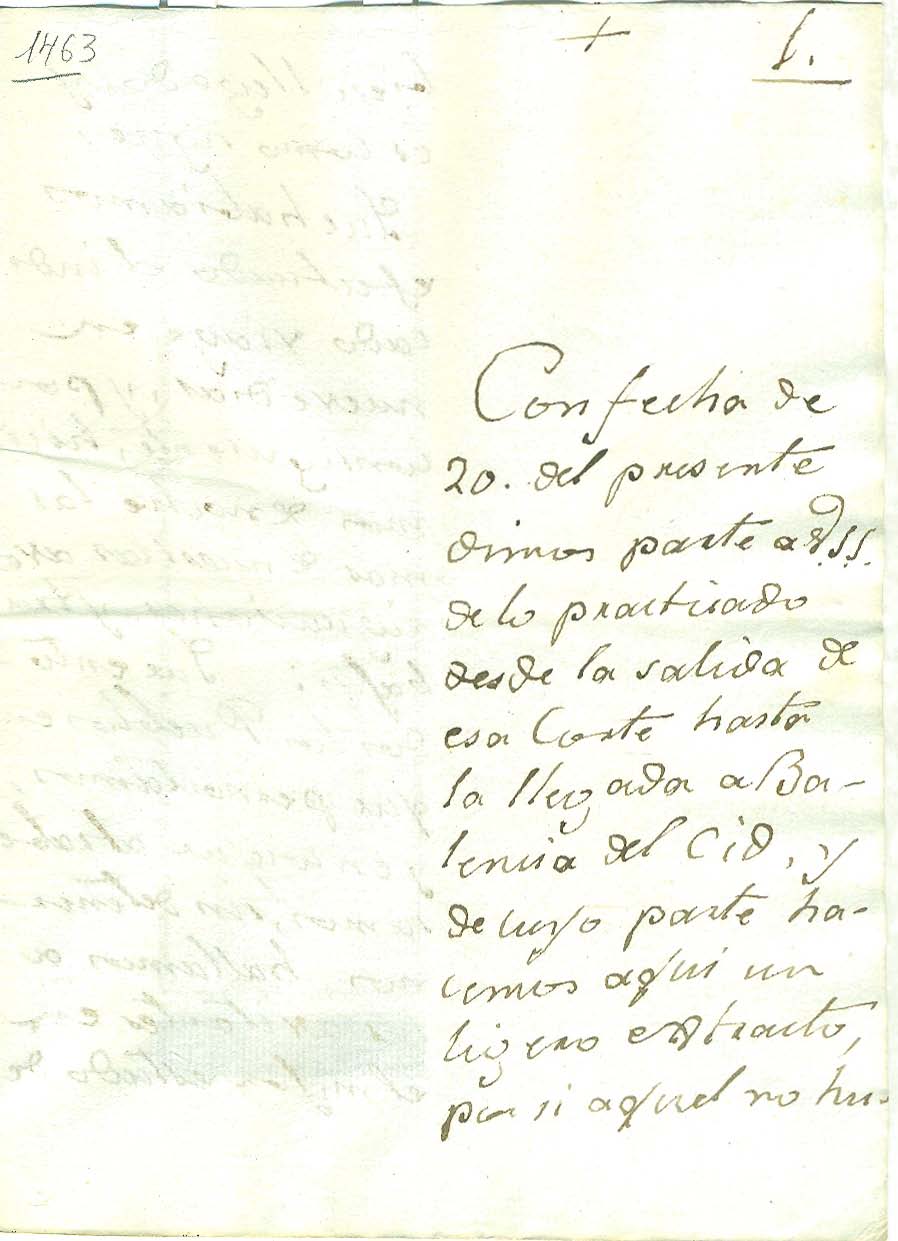 1463
+
1.
Con fecha de
20. del presente
dimos parte a V.S.S.
de lo practicado
desde la salida de
esa Corte hasta
la llegada a Ba-
lencia del Cid, y
de cuyo parte ha-
cemos aqui un
ligero extracto,
por si aquel no hu-